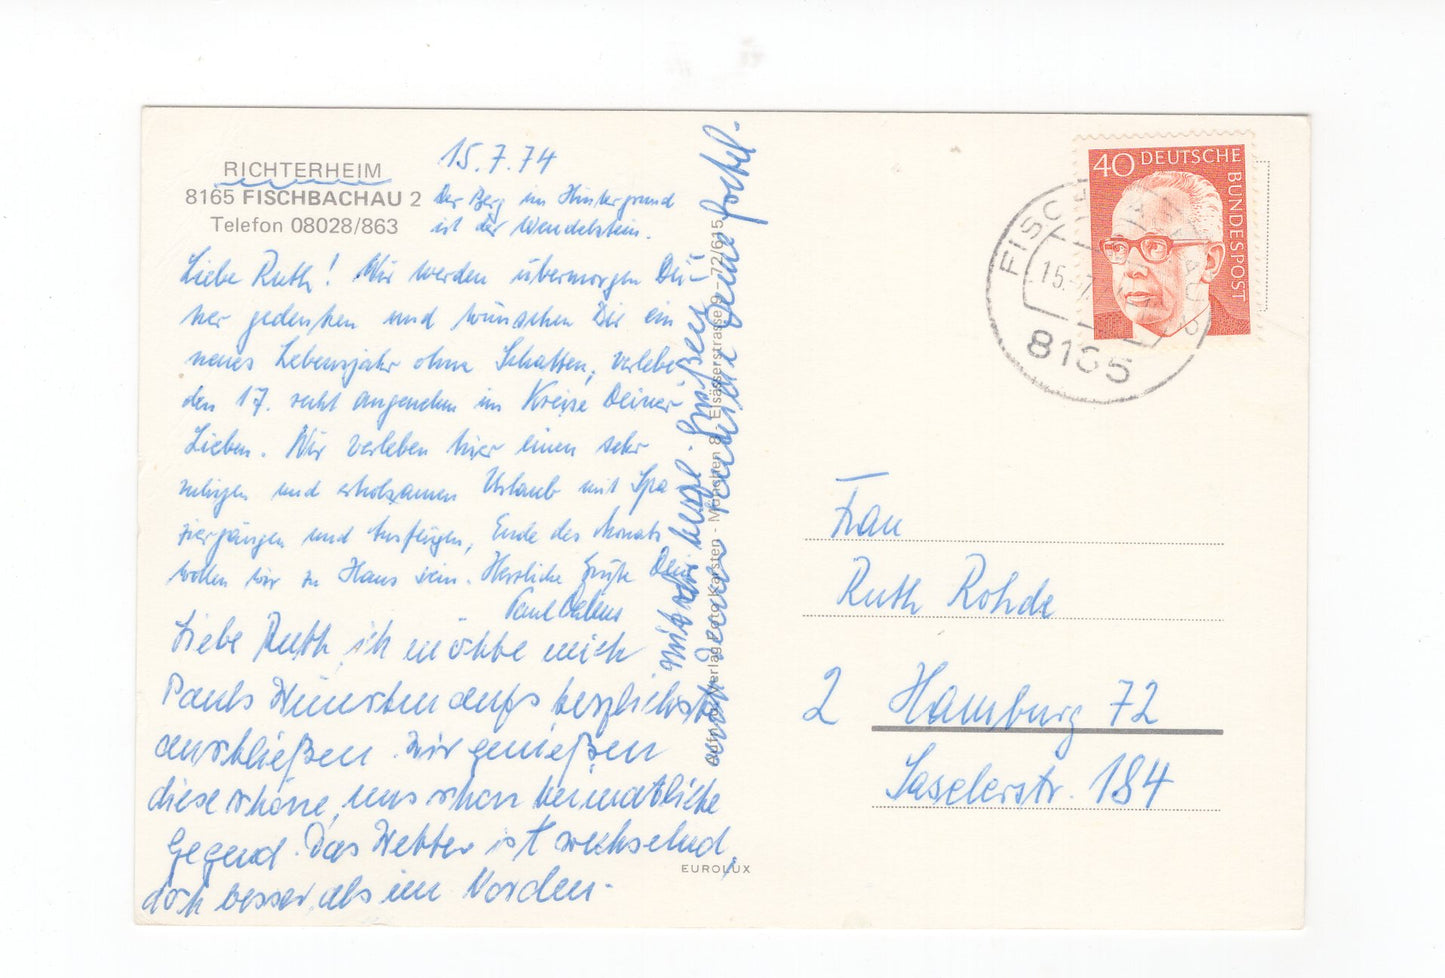 RICHTERHEIM
8165 FISCHBACHAU 2
Telefon 08028/863
15.7.74
Der Berg im Hintergrund
ist der Wendelstein.
Liebe Ruth! Wir werden übermorgen Dei-
ner gedenken und wünschen Dir ein
neues Lebensjahr ohne Schatten, verlebe
den 17. recht angenehm im Kreise Deiner
Lieben. Wir verleben hier einen sehr
ruhigen und erholsamen Urlaub mit Spa-
ziergängen und Ausflügen, Ende des Monats
wollen wir zu Haus sein. Herzliche Grüße Dein
Paul
Liebe Ruth, ich möchte mich
Pauls Wünschen aufs herzlichste
anschließen. Wir genießen
diese schöne, uns schon heimatliche
Gegend. Das Wetter ist wechselnd,
doch besser als im Norden.
mit herzl. Grüßen
Deine
Verlag Foto Karsten - München 8 - Elsässerstrasse 9 - 72/615
EUROLUX
40 DEUTSCHE
BUNDESPOST
FISCHBACHAU
15.-7.
8165
Frau
Ruth Rohde
2 Hamburg 72
Saselerstr. 184